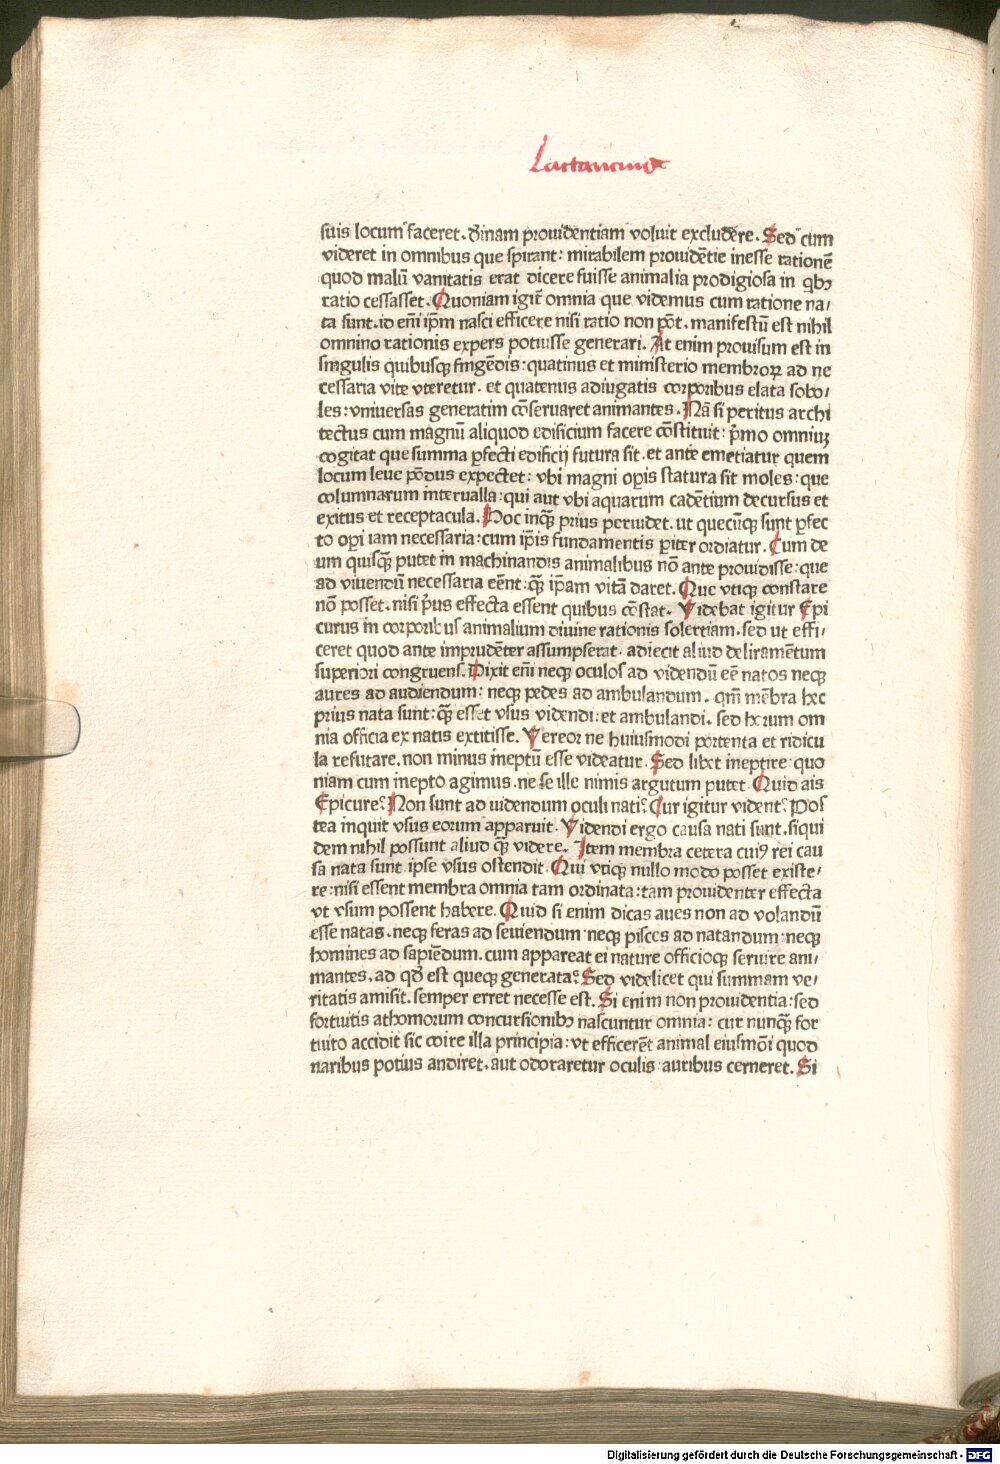 Lactancius
suis locum faceret. diuinam prouidentiam voluit excludere. Sed cum
videret in omnibus que spirant: mirabilem prouidētie inesse rationē
quod malū vanitatis erat dicere fuisse animalia prodigiosa in qbꝫ
ratio cessasset. Quoniam igit̄ omnia que videmus cum ratione na⸗
ta sunt. id em̄ ip̄m nasci efficere nisi ratio non pōt. manifestū est nihil
omnino rationis expers potuisse generari. At enim prouisum est in
singulis quibusqꝫ fingēdis: quatinus et ministerio membroꝝ ad ne
cessaria vite vteretur. et quatenus adiugatis corporibus elata sobo⸗
les: vniuersas generatim cōseruaret animantes. Nā si peritus archi
tectus cum magnū aliquod edificium facere cōstituit: p̄mo omniuꝫ
cogitat que summa ꝑfecti edificij futura sit. et ante emetiatur quem
locum leue pōdus expectet: vbi magni oꝑis statura sit moles: que
columnarum interualla: qui aut vbi aquarum cadētium decursus et
exitus et receptacula. Hoc inqꝫ̄ prius peruidet. ut quecūqꝫ sunt ꝑfec
to oꝑi iam necessaria: cum ip̄is fundamentis ꝑiter ordiatur. Cum de
um quisqꝫ̄ putet in machinandis animalibus nō ante prouidisse: que
ad viuendū necessaria eēnt: qꝫ̄ ip̄am vitā daret. Que vtiqꝫ constare
nō posset. nisi p̄us effecta essent quibus cōstat. Videbat igitur Epi
curus in corporibus animalium diuine rationis solertiam. sed ut effi⸗
ceret quod ante imprudēter assumpserat. adiecit aliud deliramētum
superiori congruens. Dixit em̄ neqꝫ oculos ad videndū eē natos neqꝫ
aures ad audiendum: neqꝫ pedes ad ambulandum. qm̄ mēbra hec
prius nata sunt: qꝫ̄ esset vsus videndi: et ambulandi. sed horum om
nia officia ex natis extitisse. Vereor ne huiusmodi portenta et ridicu
la refutare. non minus ineptū esse videatur. Sed libet ineptire: quo
niam cum inepto agimus. ne se ille nimis argutum putet. Quid ais
Epicure? Non sunt ad uidendum oculi nati? Cur igitur vident? Pos
tea inquit vsus eorum apparuit. Videndi ergo causa nati sunt. siqui
dem nihil possunt aliud qꝫ̄ videre. Item membra cetera cuiꝰ rei cau
sa nata sunt ipse vsus ostendit. Qui vtiqꝫ nullo modo posset existe⸗
re: nisi essent membra omnia tam ordinata: tam prouidenter effecta
vt vsum possent habere. Quid si enim dicas aues non ad volandū
esse natas. neqꝫ feras ad seuiendum: neqꝫ pisces ad natandum: neqꝫ
homines ad sapiēdum. cum appareat ei nature officioqꝫ seruire ani⸗
mantes. ad qd̄ est queqꝫ generata? Sed videlicet qui summam ve⸗
ritatis amisit. semper erret necesse est. Si enim non prouidentia: sed
fortuitis athomorum concursionibꝫ nascuntur omnia: cur nunqꝫ̄ for
tuito accidit sic coire illa principia: vt efficerēt animal eiusmōi quod
naribus potius audiret. aut odoraretur oculis: auribus cerneret. Si
Digitalisierung gefördert durch die Deutsche Forschungsgemeinschaft - DFG